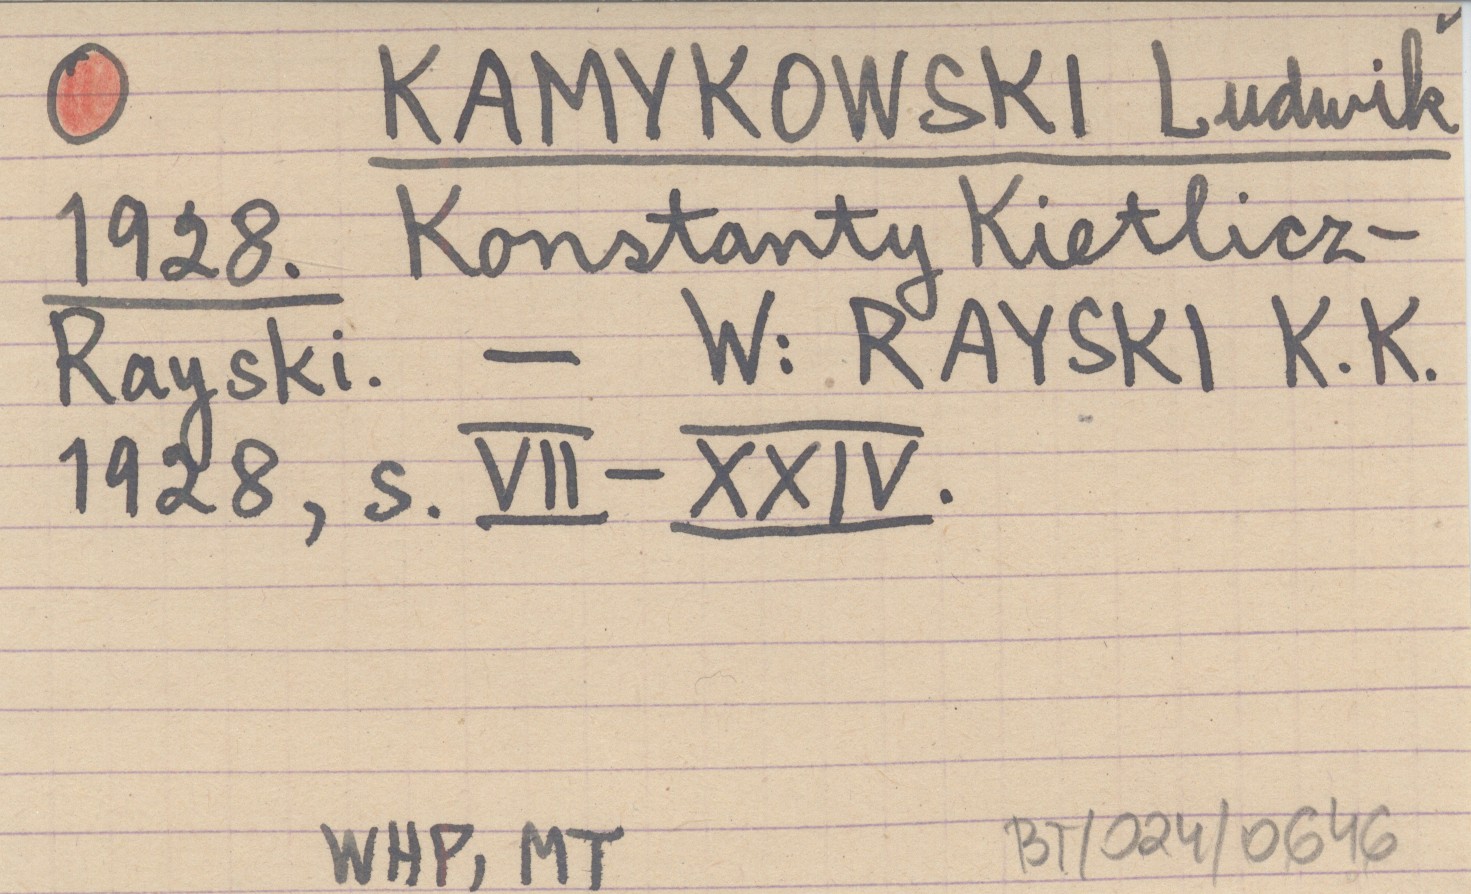 KAMYKOWSKI Ludwik
1928. Konstanty Kietlicz-
Rayski. — W: RAYSKI K.K.
1928, s. VII-XXIV.
WHP, MT
BT/024/0646